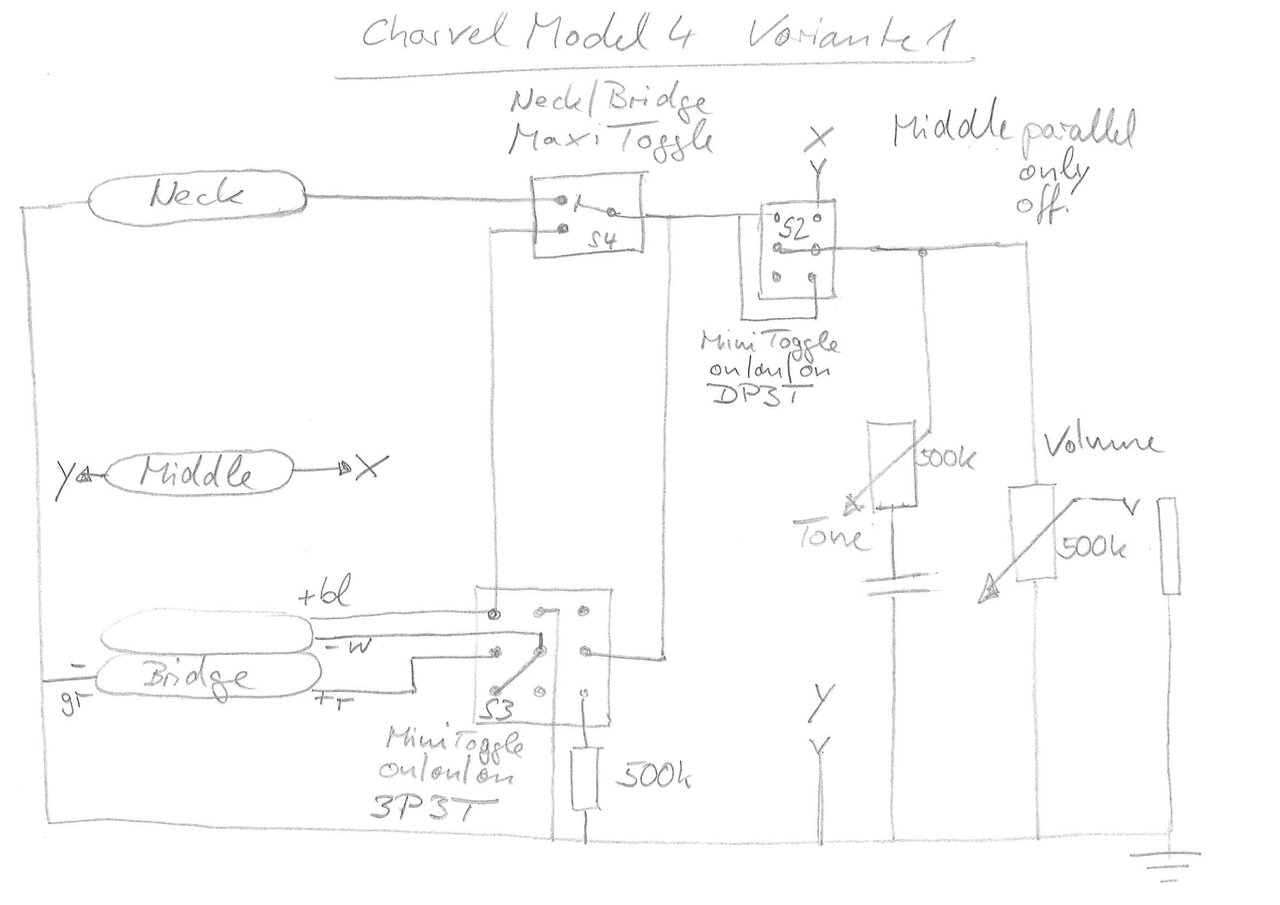 Charvel Model 4 Variante 1
Neck/Bridge
Maxi Toggle
X
Middle parallel
only
off.
Neck
S4
S2
Mini Toggle
on/on/on
DP3T
Y
Middle
X
500k
Volume
Tone
500k
+bl
-w
Bridge
-
gr
+r
S3
Mini Toggle
on/on/on
3P3T
500k
Y